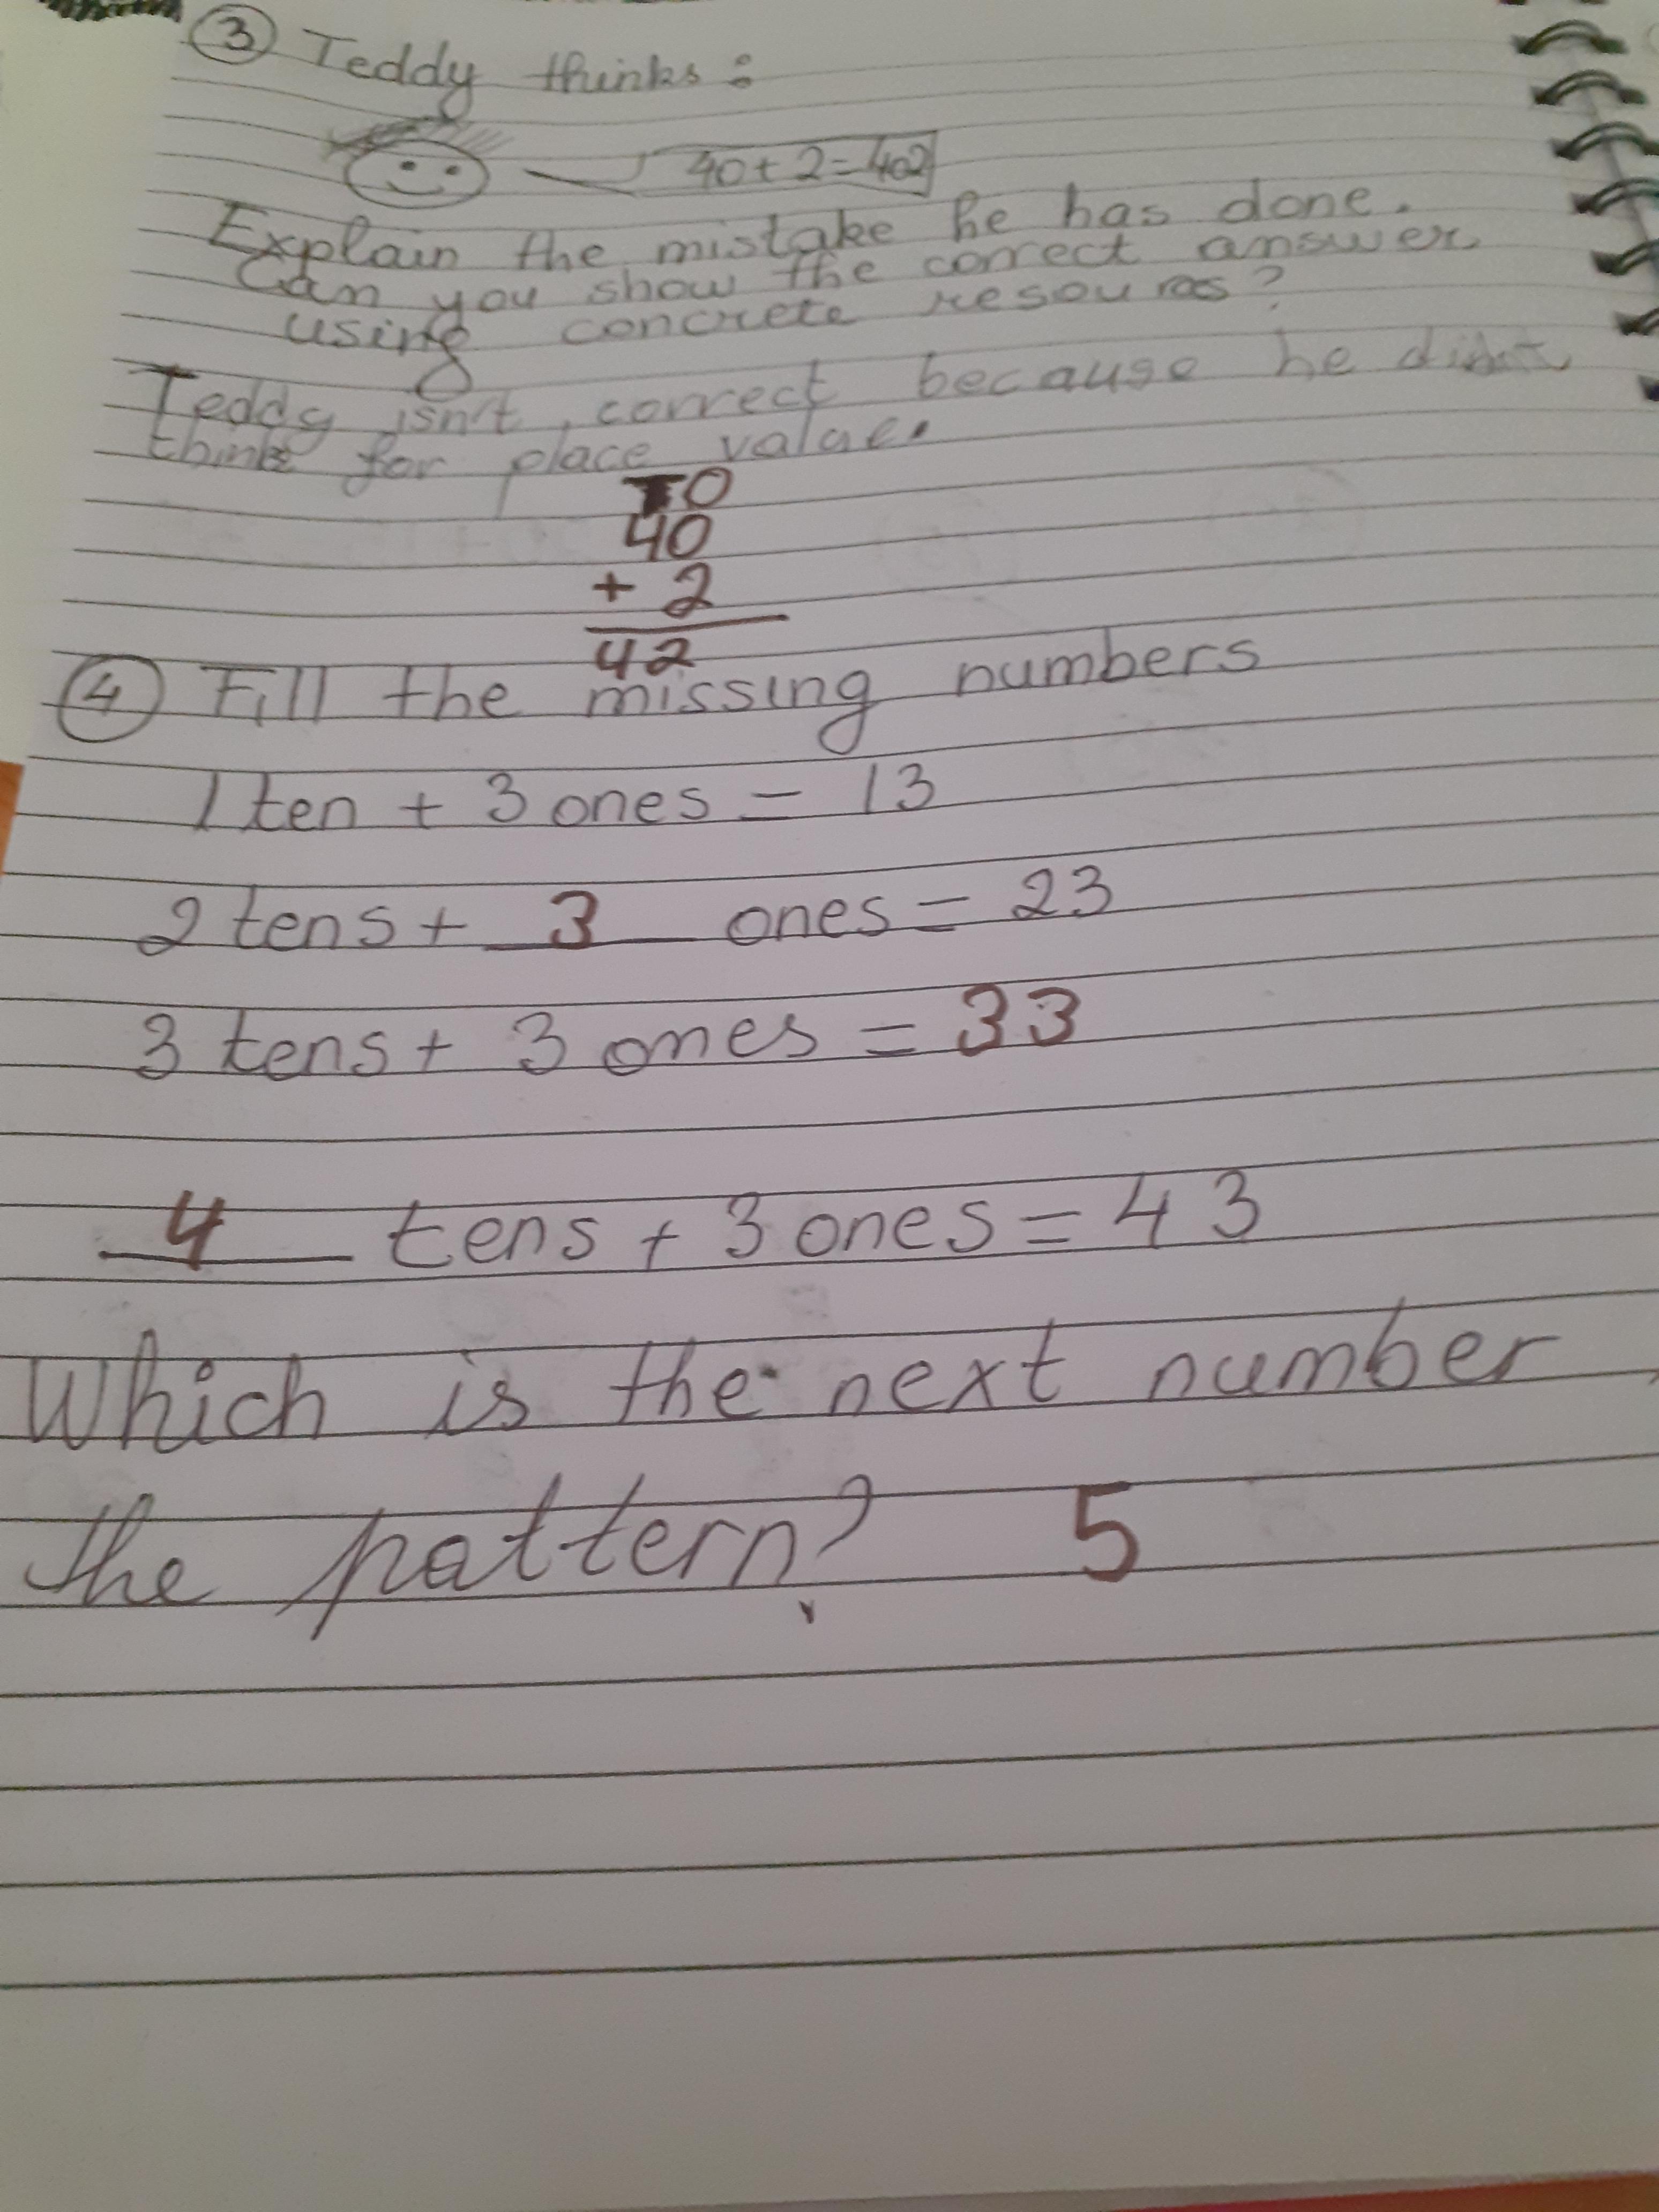 ③ Teddy thinks:
40 + 2 = 402
Explain the mistake he has done.
Can you show the correct answer
using concrete resources?
Teddy isn't correct because he didn't
think for place value.
TO
40
+ 2
42
④ Fill the missing numbers
1 ten + 3 ones = 13
2 tens + 3 ones = 23
3 tens + 3 ones = 33
4 tens + 3 ones = 43
Which is the next number
the pattern? 5